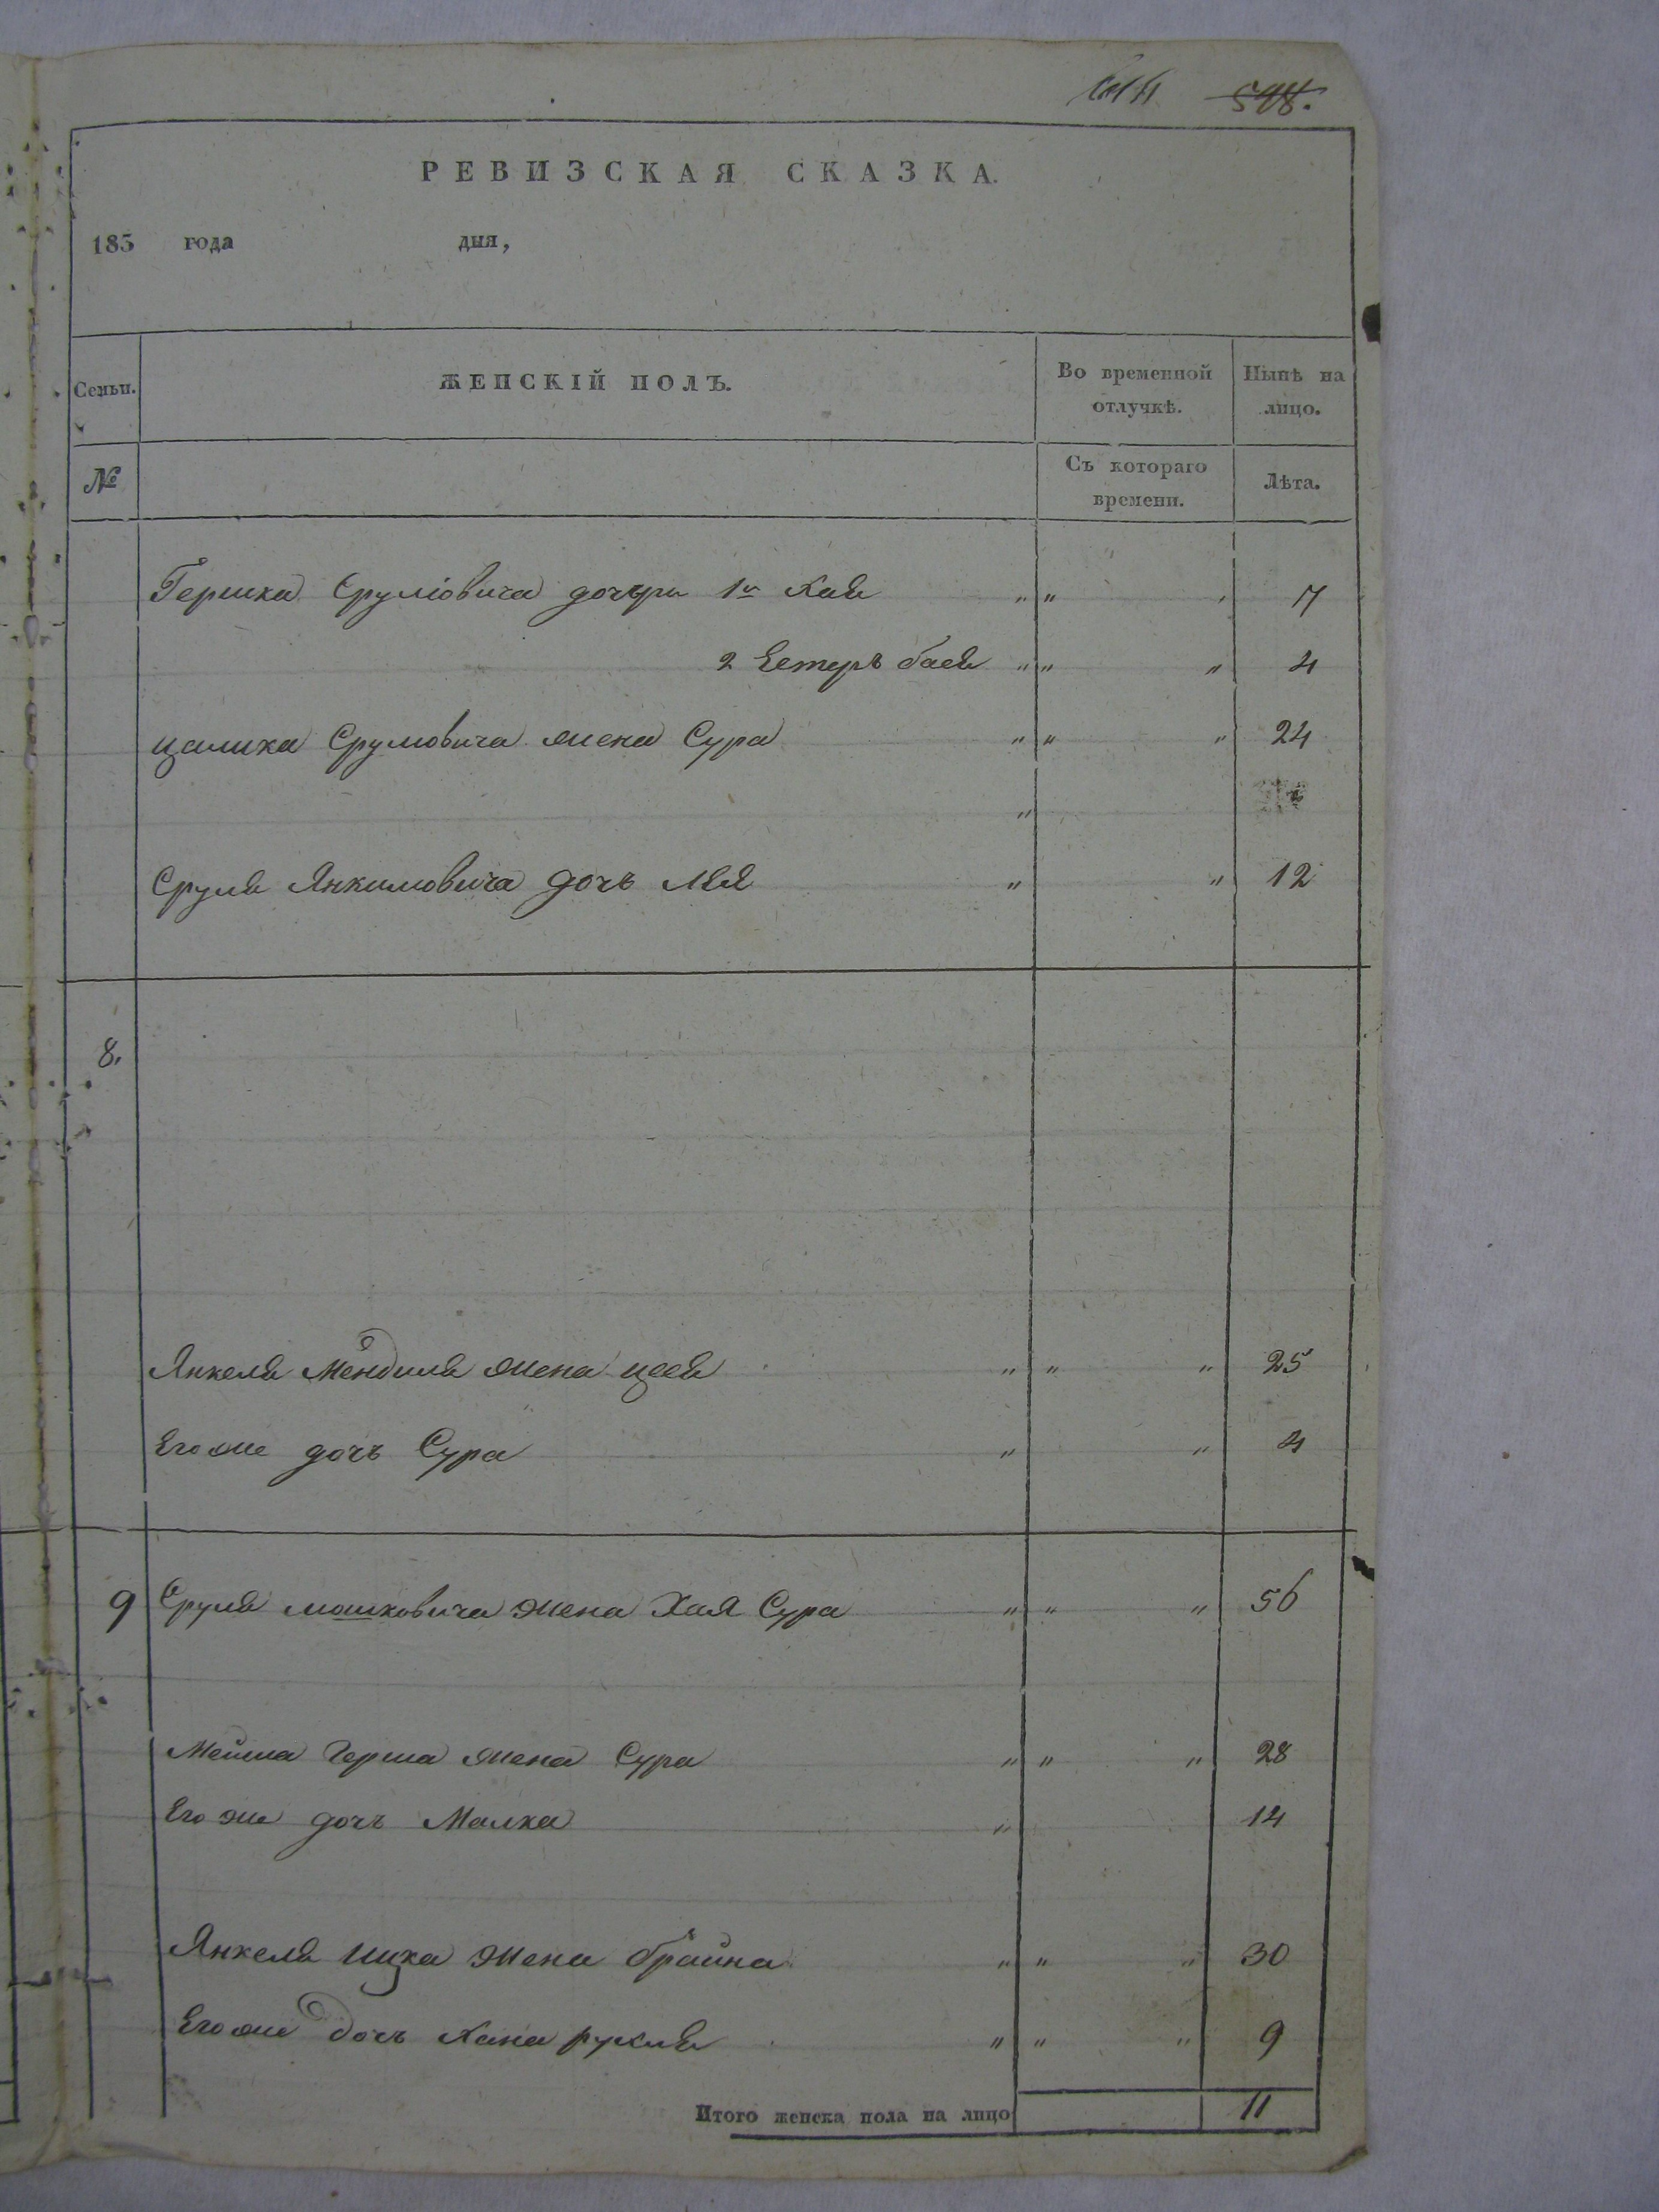 598.
РЕВИЗСКАЯ СКАЗКА.
185 года дня,
Семьи. ЖЕНСКІЙ ПОЛЪ. Во временной отлучкѣ. Нынѣ на лицо.
№ Съ котораго времени. Лѣта.
Гершка Сруліовича дочери 1я Хая " " " 7
2 Естеръ бася " " " 4
Цалика Срумовича жена Сура " " " 24
"
Сруля Янкимовича дочь Лея " " 12
8.
Янкеля Мендиля жена цося " " " 25
Его же дочь Сура " " 4
9 Сруля мошковича жена Хая Сура " " " 56
Мейша Герша жена Сура " " " 28
Его же дочь Малка " 14
Янкеля Ицка жена брайна " " " 30
Его же дочь Хана рухля " " " 9
Итого женска пола на лицо 11